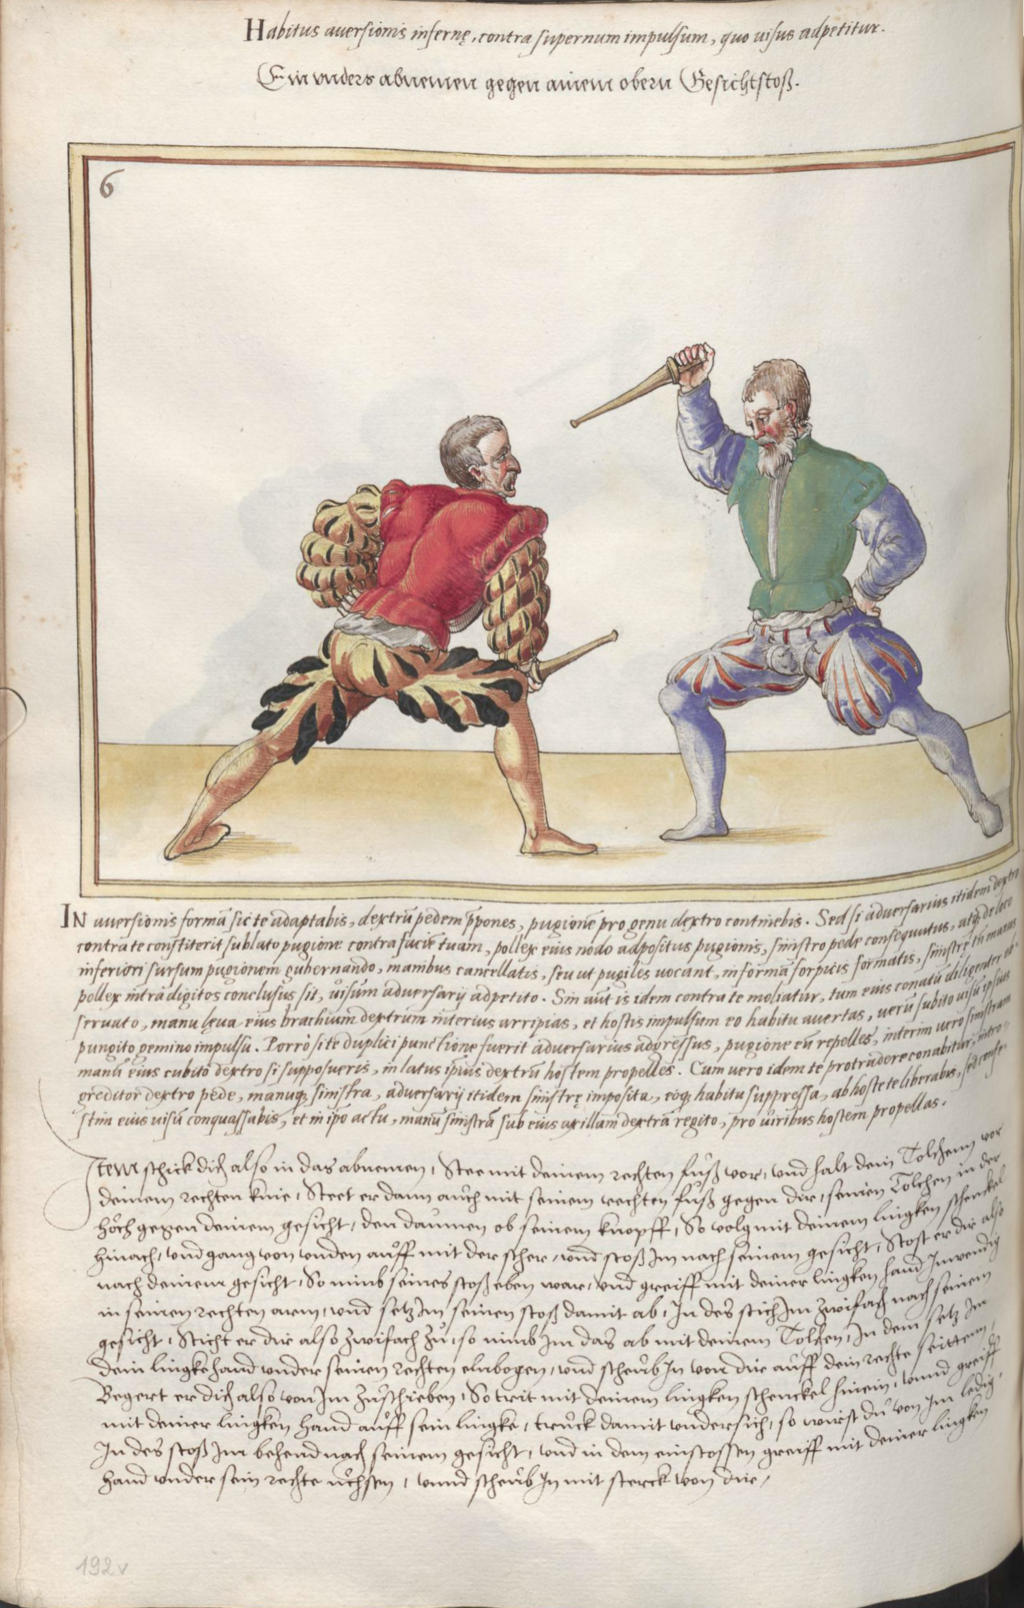 Habitus auersionis infernę, contra supernum impulsum, quo uisus adpetitur.
Ein vnders abnemen gegen ainem obern Gesichtstoß.
6
IN auersionis formã sic te adaptabis, dextrũ pedem p̃pones, pugionẽ pro genu dextro continebis. Sed si aduersarius itidem dextro
contra te constiterit sublato pugione contra faciẽ tuam, pollex eius nodo adpositus pugionis, sinistro pede consequutus, atq́ de loco
inferiori sursum pugionem gubernando, manibus cancellatis, seu ut pugiles uocant, in formã forpicis formatis, sinistrę tñ manus
pollex intra digitos conclusus sit, uisum aduersarij adpetito. Sin aũt is idem contra te moliatur, tum eius conatũ diligenter ob
seruato, manu lęua eius brachium dextrum interius arripias, et hostis impulsum eo habitu auertas, uerũ subito uisũ ipsius
pungito gemino impulsu. Porrò si te duplici punctione fuerit aduersarius adgressus, pugione eũ repelles, interim uero sinistram
manũ eius cubito dextro si supposueris, in latus ipsius dextrũ hostem propelles. Cum uero idem te protrudere conabitur, intro
greditor dextro pede, manuq́ sinistra, aduersarij itidem sinistrę imposita, eoq́ habitu suppressa, ab hoste te liberabis, sed confe
stim eius uisũ conquassabis, et in ip̃o actu, manũ sinistrã sub eius axillam dextrã regito, pro uiribus hostem propellas.
Item schick dich also in das abnemen, Stee mit deinem rechten fuß vor, vnd halt dein Tolchenn vor
deinem rechten knie, Steet er dann auch mit seinem rechten fuß gegen dir, seinen Tolchen in der
höch gegen deinem gesicht, den daumen ob seinem knopff, So volg mit deinem lingken schenckel
hinach, vnd gang von vnden auff mit der scher, vnd stoß Im nach seinem gesicht, Stost er dir also
nach deinem gesicht, So nimb seines stoß eben war, vnd greiff mit deiner lingken hand Inwendig
in seinen rechten arm, vnd setz Im seinen stoß damit ab, In des stich Im zwifach nach seinem
gesicht, Sticht er dir also zwifach zu, so nimb Im das ab mit deinem Tolchen, In dem setz Im
dein lingke hand vnder seinen rechten elnbogen, vnd scheub In von dir auff dein rechte seitten,
Begert er dich also von Im zuschieben, So trit mit deinem lingken schenckel hinein, vnnd greiff
mit deiner lingken hand auff sein lingke, truck damit vndersich, so wirst du von Im ledig,
In des stoß Im behend nach seinem gesicht, vnd in dem einstossen greiff mit deiner lingken
hand vnder sein rechte üchsen, vnnd scheub In mit sterck von dir,
192v